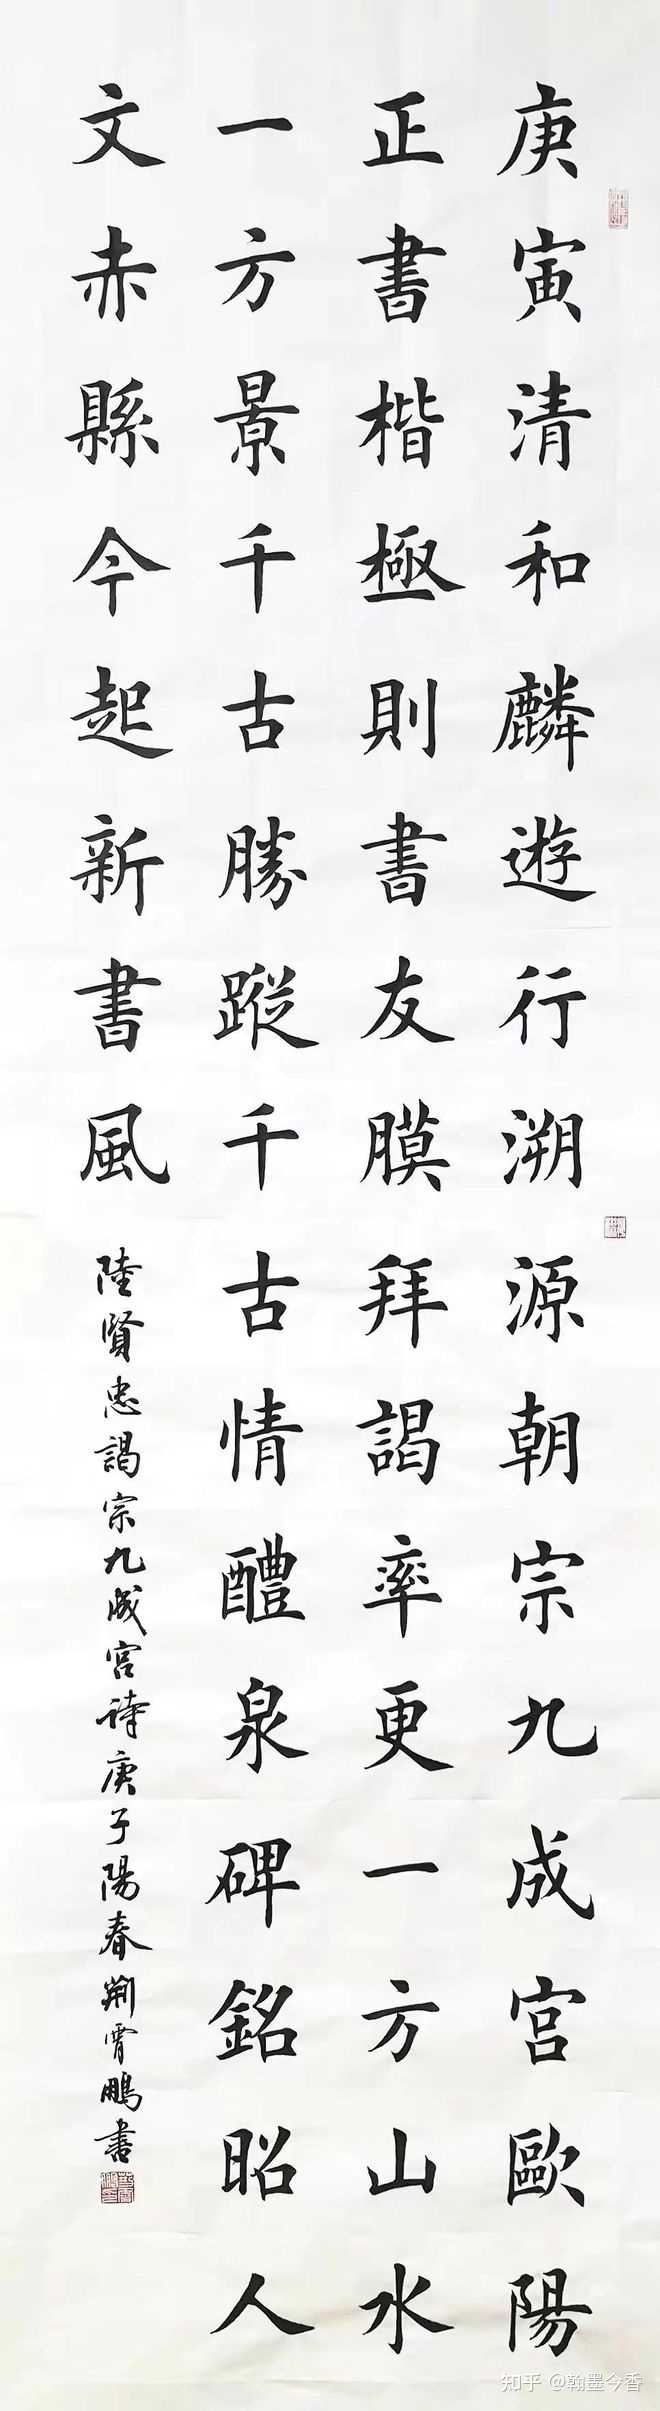 庚寅清和麟遊行溯源朝宗九成宫歐陽
正書楷極則書友膜拜謁率更一方山水
一方景千古勝蹤千古情醴泉碑銘昭人
文赤縣今起新書風
陸賢忠謁宗九成宫詩庚子陽春荆霄鵬書
知乎 @翰墨今香